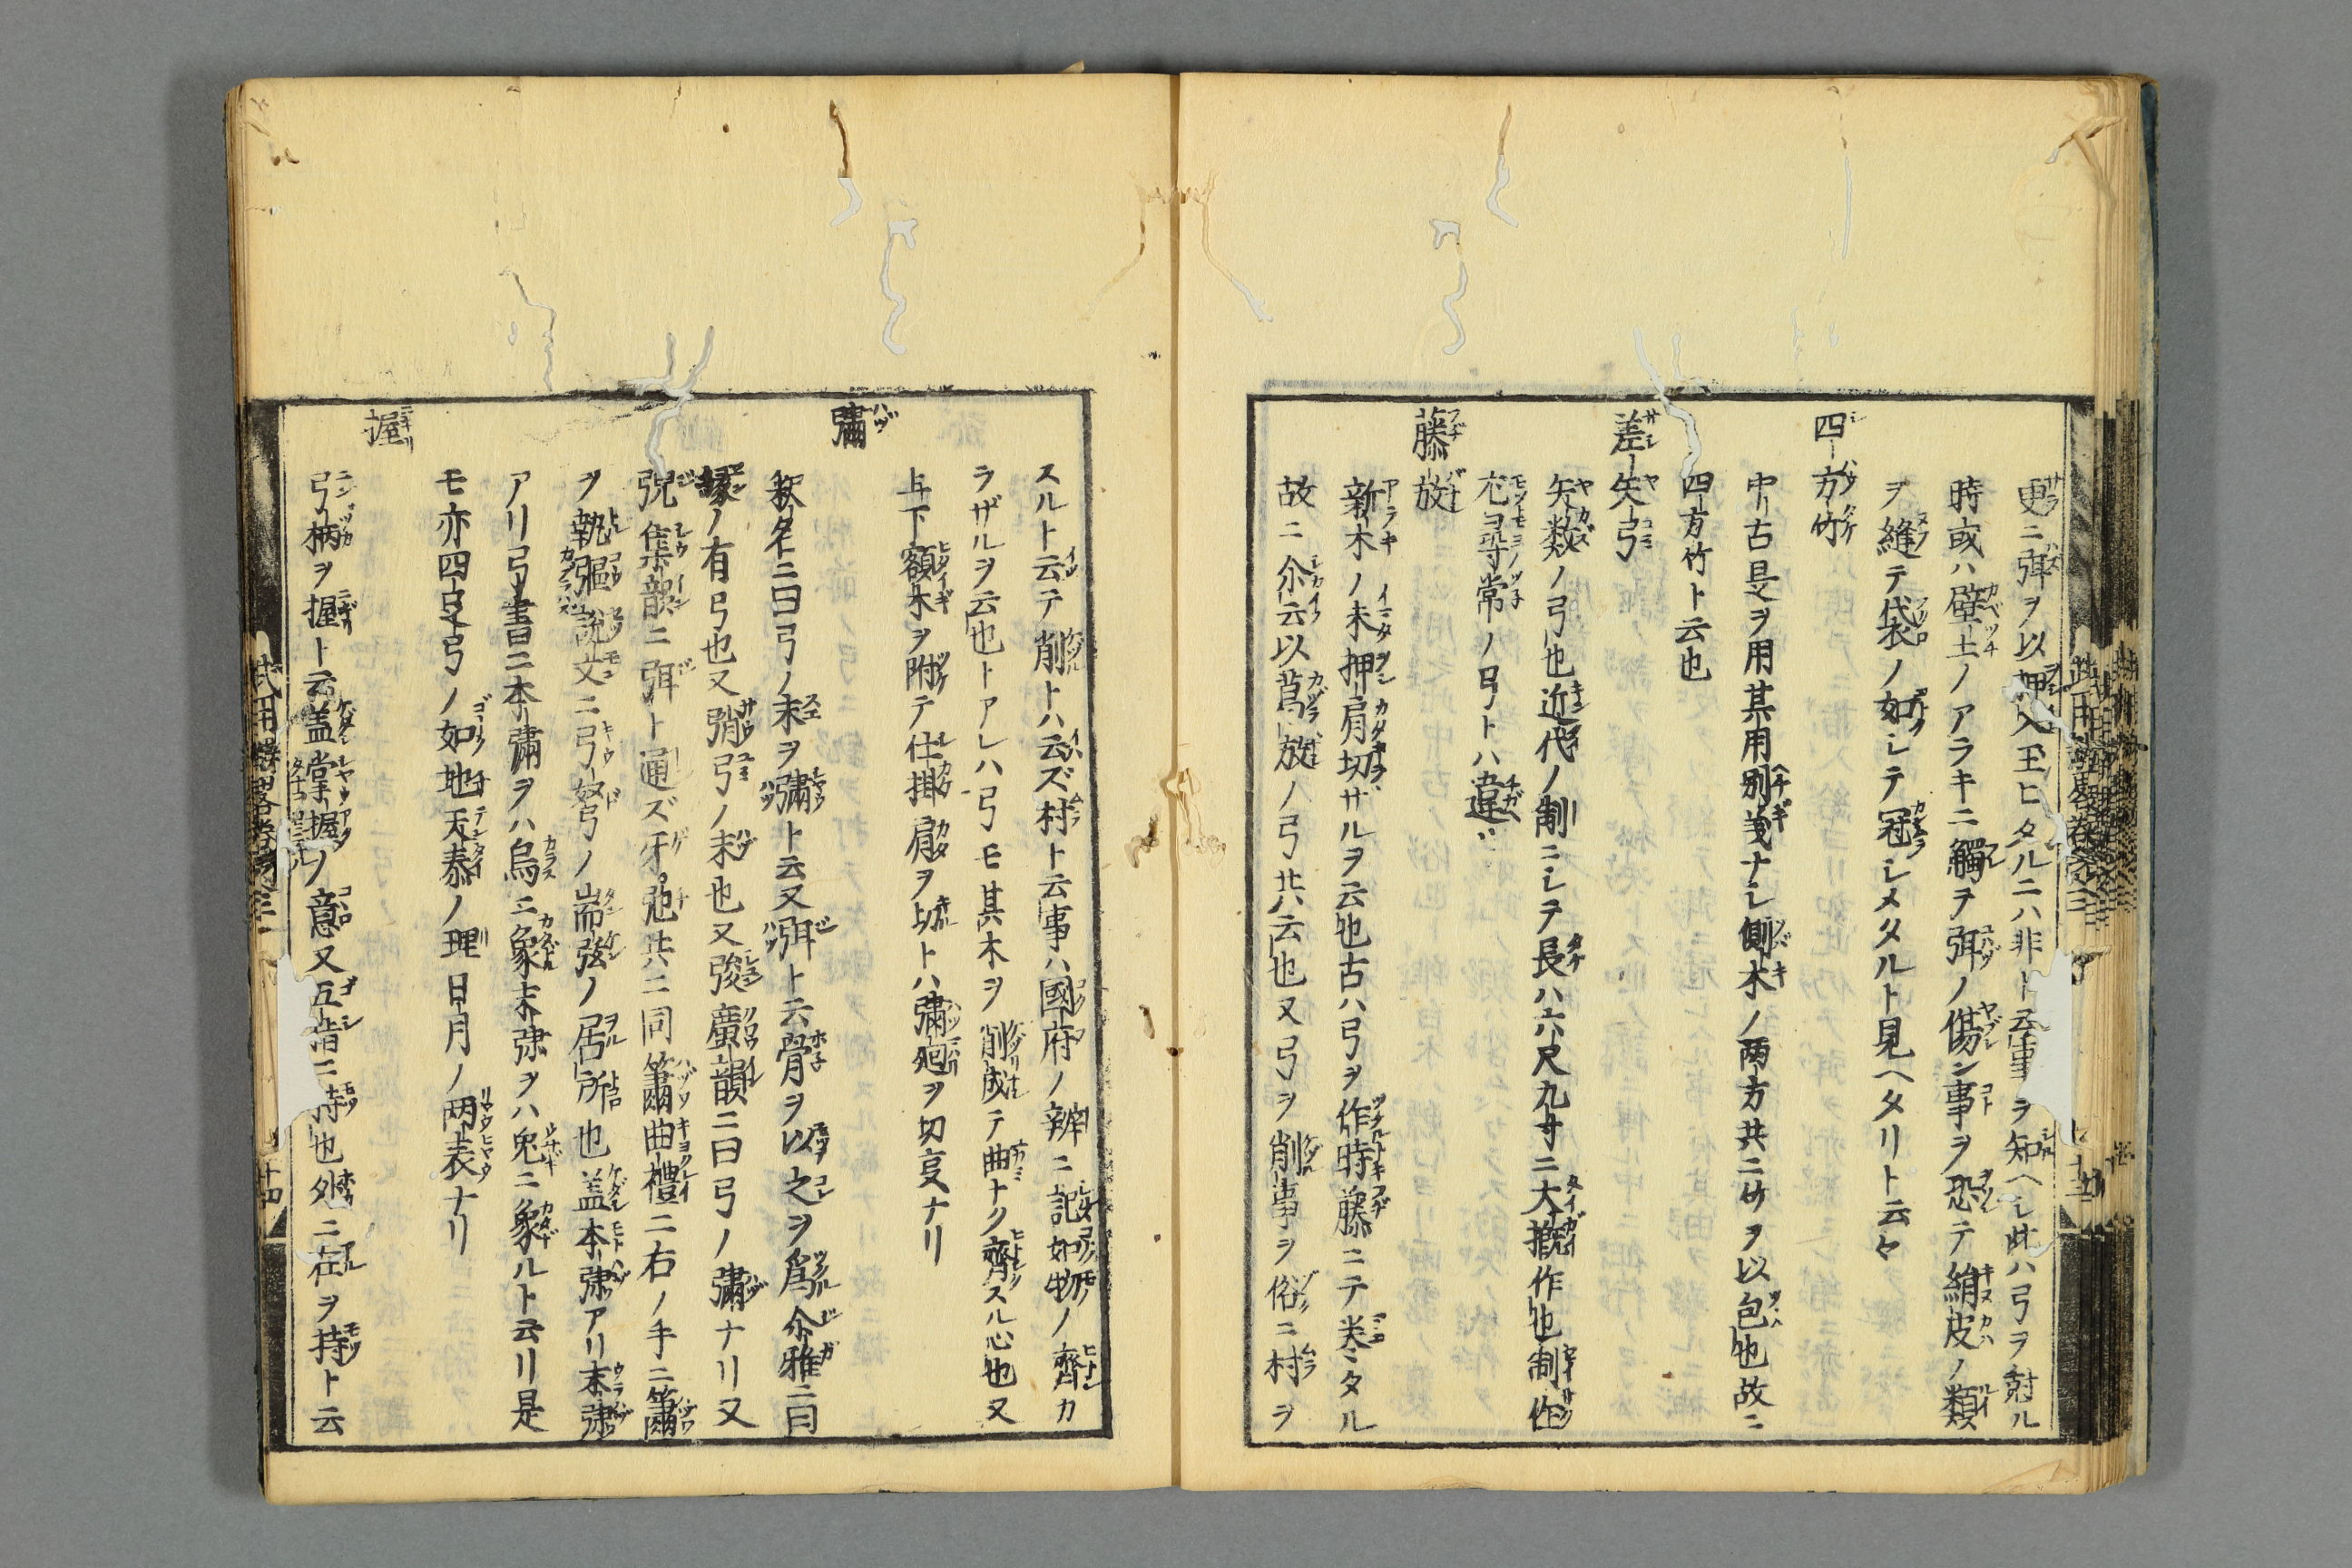 更ニ弭ヲ以押入玉ヒタルニハ非ト云事ヲ知ヘシ此ハ弓ヲ射ル
時或ハ壁土ノアラキニ觸ヲ弭ノ傷ン事ヲ恐テ絹皮ノ類
ヲ縫テ袋ノ如シテ冠シメタルト見ヘタリト云々
四方竹
中リ古是ヲ用其用別義ナシ側木ノ両方共ニ竹ヲ以包也故ニ
四方竹ト云也
差矢弓
矢数ノ弓也近代ノ制ニシテ長ハ六尺九寸ニ大概作也制作
尤尋常ノ弓トハ違
藤放
新木ノ未押肩切サルヲ云也古ハ弓ヲ作時藤ニテ巻タル
故ニ尒云以葛放ノ弓共云也又弓ヲ削事ヲ俗ニ村ヲ
スルト云テ削トハ云ズ村ト云事ハ國府ノ辨ニ記如物ノ齊カ
ラザルヲ云也トアレハ弓モ其木ヲ削成テ曲ナク齊スル心也又
上下額木ヲ附テ仕掛肩ヲ切トハ彇廻ヲ切㕝ナリ
彇
釈名ニ曰弓ノ末ヲ彇ト云又弭ト云骨ヲ以之ヲ爲尒雅ニ曰
縁ノ有弓也又弰弓ノ末也又㢾廣韻ニ曰弓ノ彇ナリ又
㧑集韻ニ弭ト通ズ牙弝共ニ同簫曲禮ニ右ノ手ニ簫
ヲ執彄説文ニ弓弩ノ耑弦ノ居所也盖本弭アリ末弭
アリ弓書ニ本彇ヲハ烏ニ象末弭ヲハ兎ニ象ルト云リ是
モ亦四足弓ノ如地天泰ノ理日月ノ両表ナリ
握
弓柄ヲ握ト云盖掌握ノ意又五指ニ持也外ニ在ヲ持ト云
武用辨略巻之三
十四